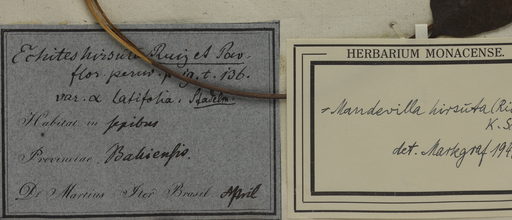 Echites hirsuta Ruiz et Pav.
flor. peruv. p. 19. t. 136.
var. α latifolia. Stadelm.
Habitat in sepibus
Provinciae Bahiensis.
De Martius Iter Brasil April
HERBARIUM MONACENSE.
= Mandevilla hirsuta (Ri
K. Sc
det. Markgraf 19